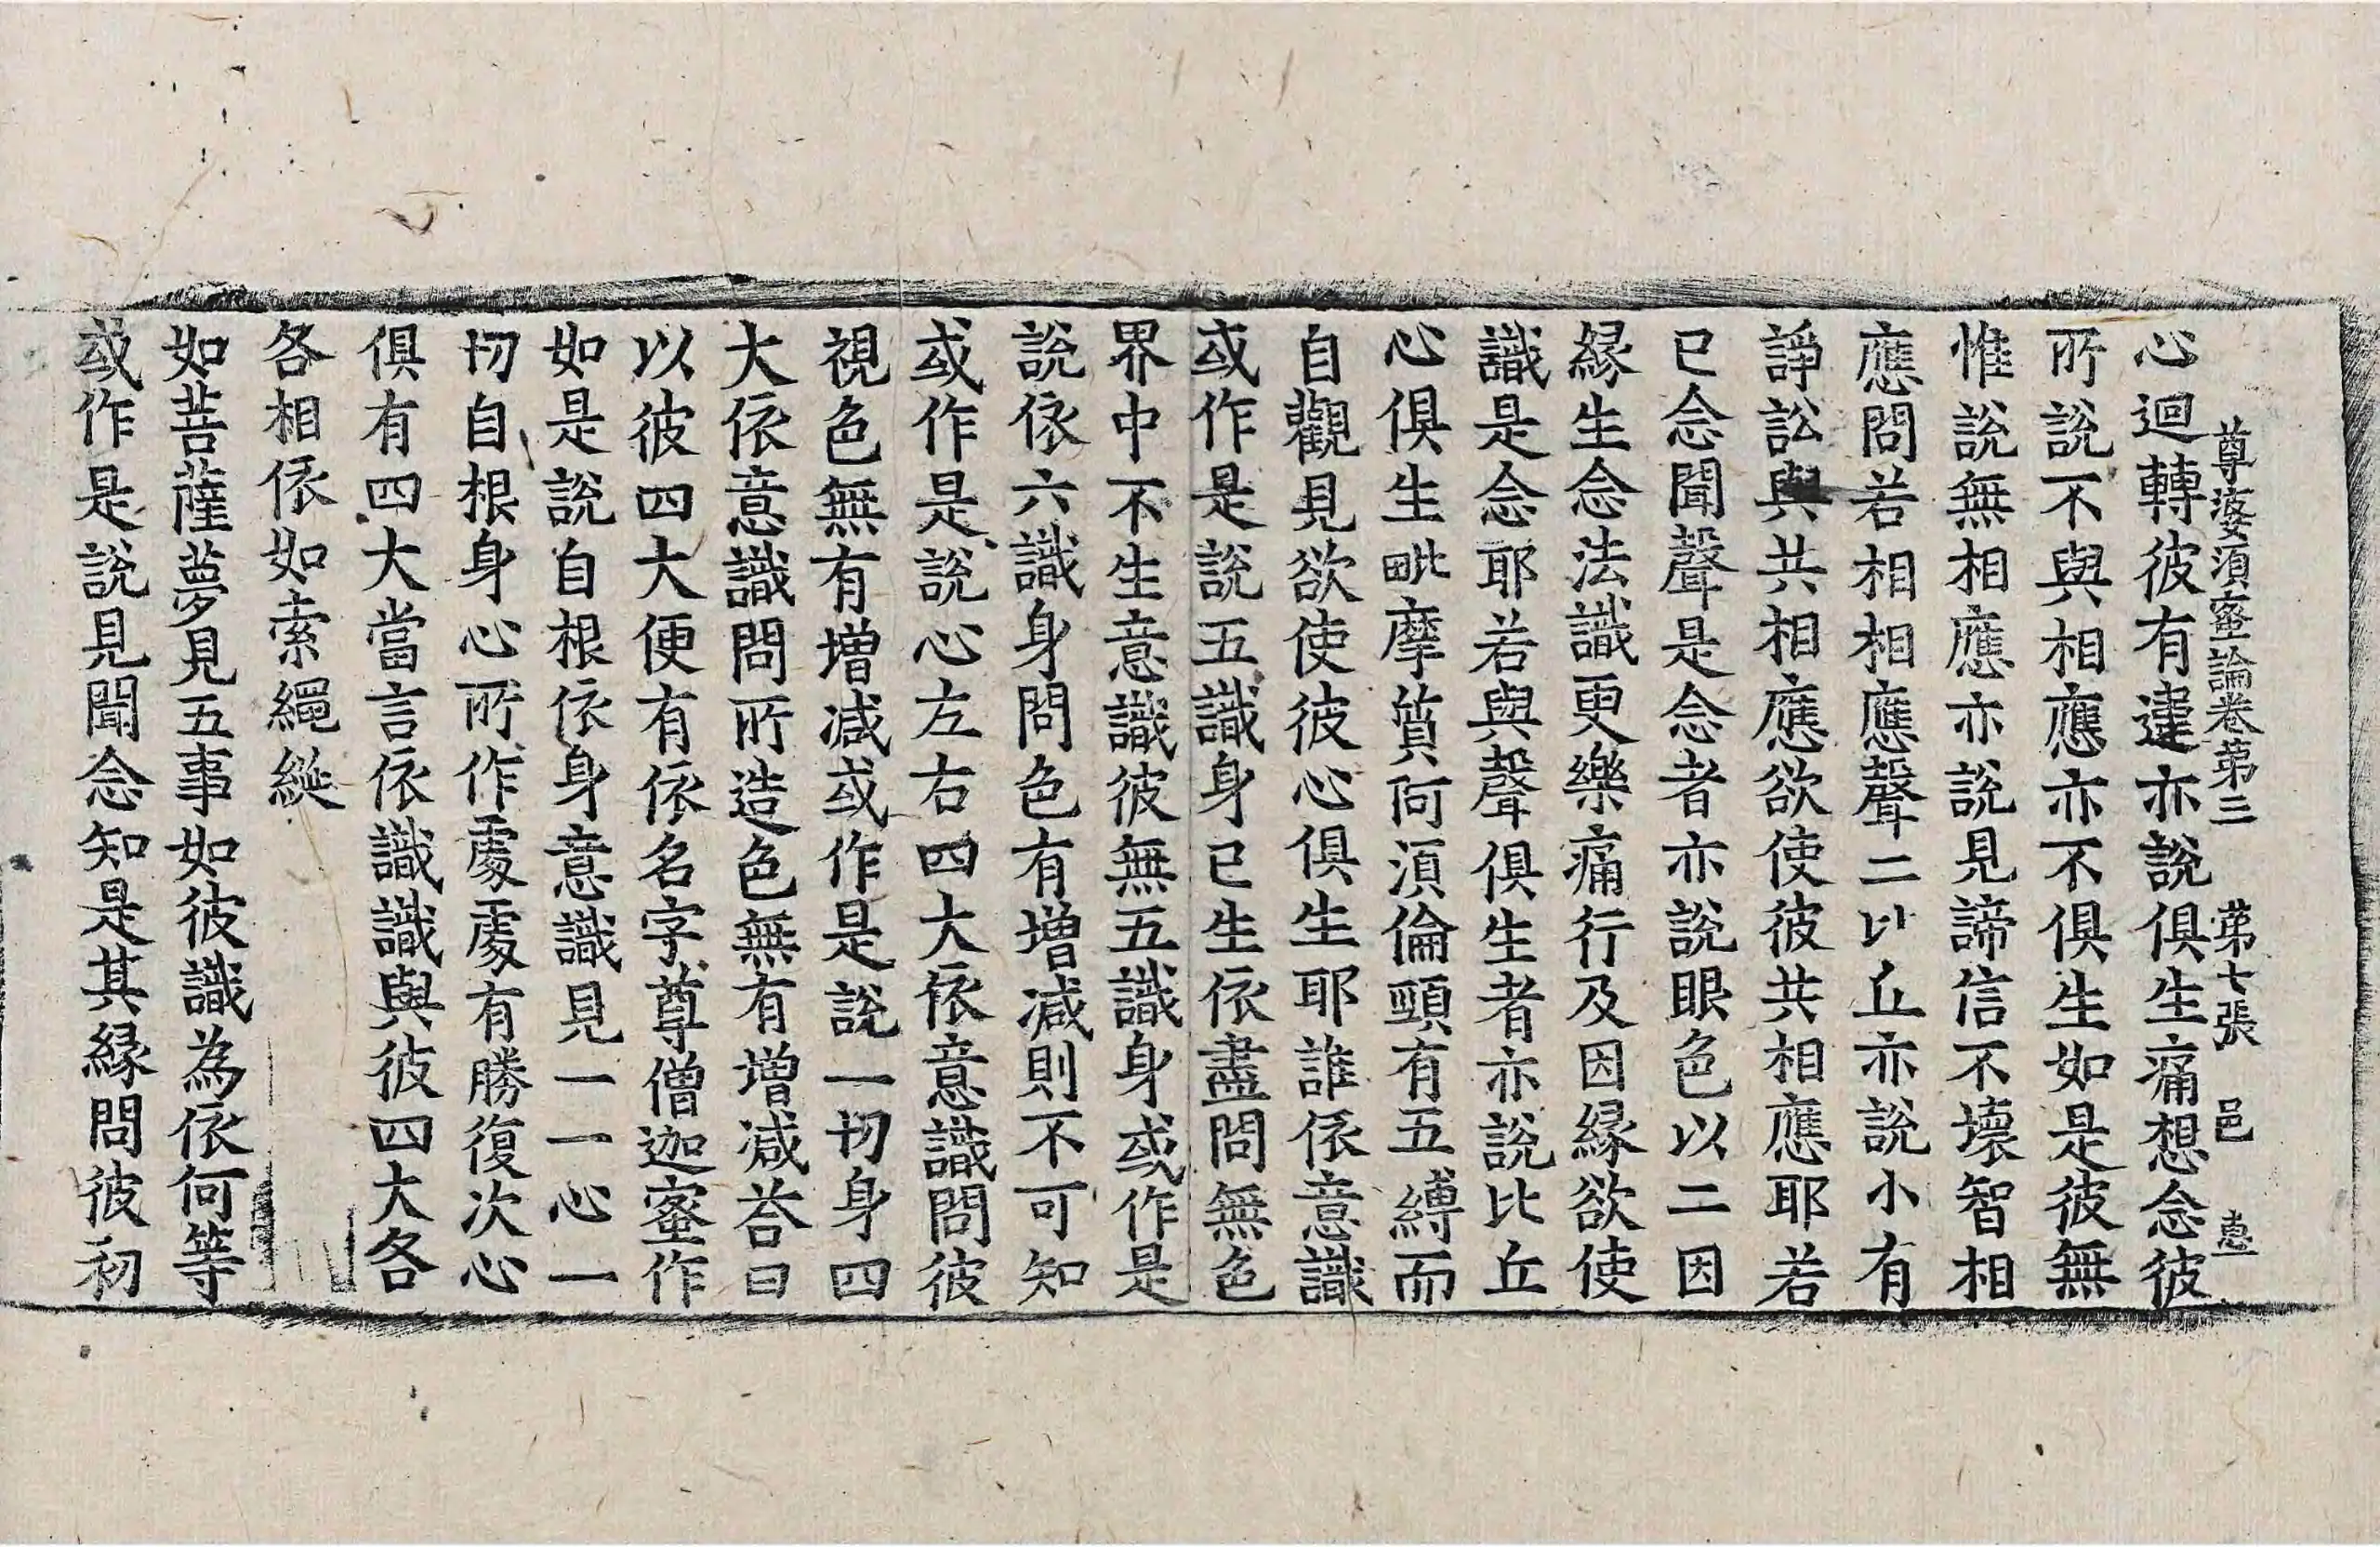 尊婆須蜜論卷第三 第七張 邑
心迴轉彼有違亦說俱生痛想念彼
所說不與相應亦不俱生如是彼無
惟說無相應亦說見諦信不壞智相
應問若相相應聲二以丘亦說小有
諍訟與共相應欲使彼共相應耶若
已念聞聲是念者亦說眼色以二因
緣生念法識更樂痛行及因緣欲使
識是念耶若與聲俱生者亦說比丘
心俱生毗摩質阿須倫頸有五縛而
自觀見欲使彼心俱生耶誰依意識
或作是說五識身已生依盡問無色
界中不生意識彼無五識身或作是
說依六識身問色有增減則不可知
或作是說心左右四大依意識問彼
視色無有增減或作是說一切身四
大依意識問所造色無有增減荅曰
以彼四大便有依名字尊僧迦蜜作
如是說自根依身意識見一一心一
切自根身心所作處處有勝復次心
俱有四大當言依識識與彼四大各
各相依如索繩綖
如菩薩夢見五事如彼識為依何等
或作是說見聞念知是其緣問彼初